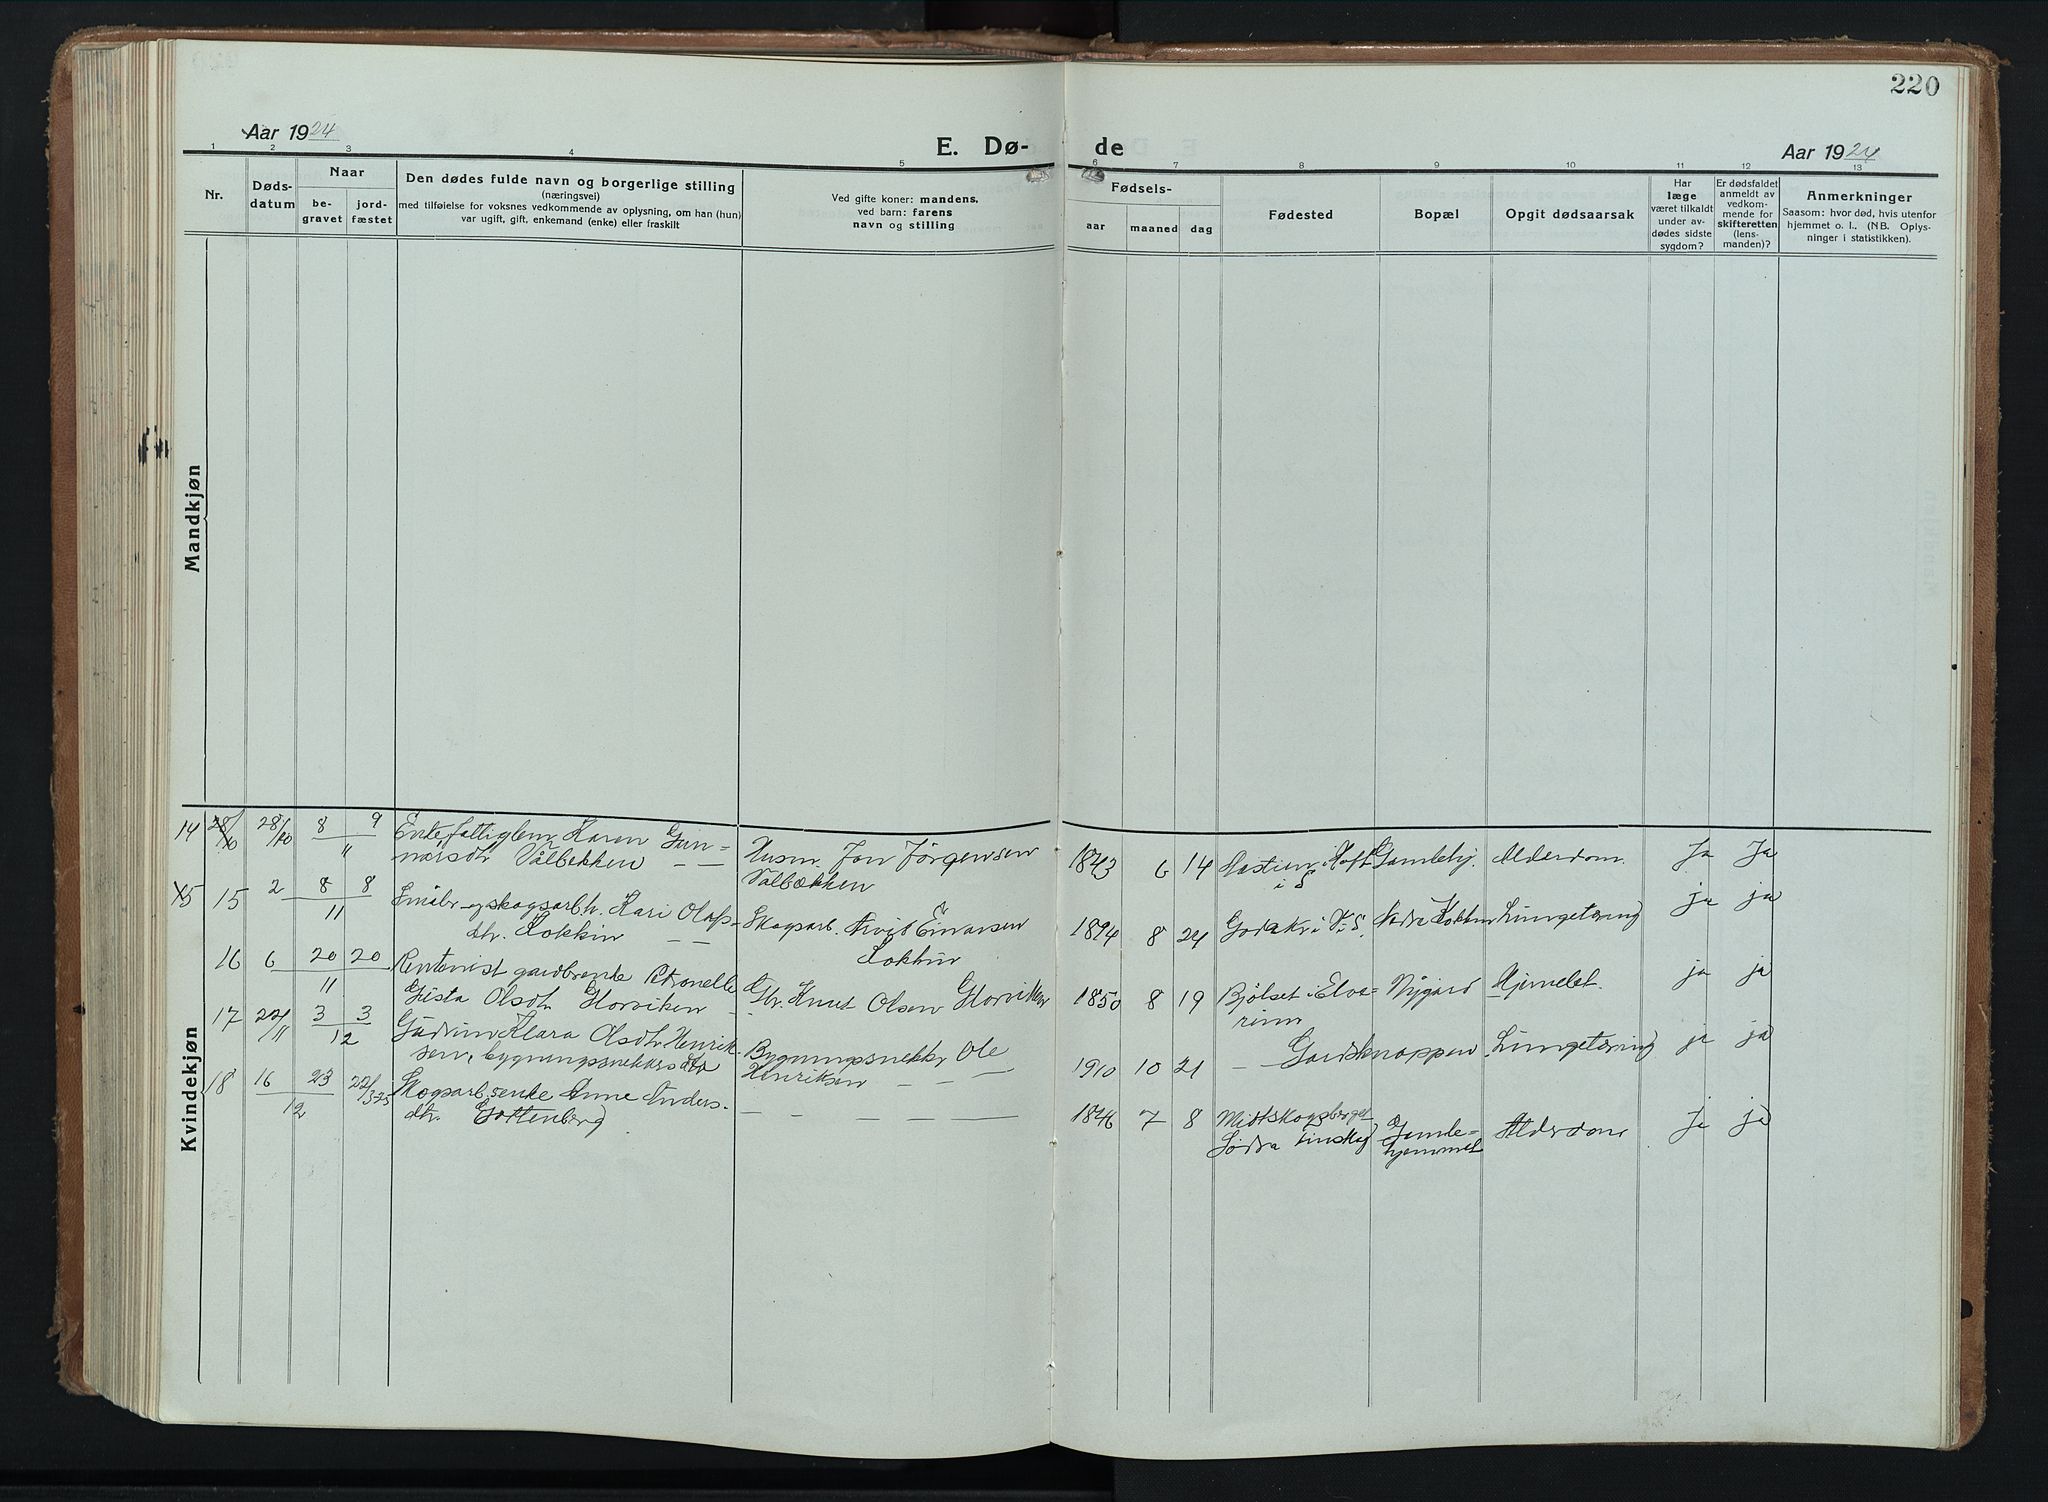 220
Aar 1924
E. Dø-
de
Aar 1924
1 2 3 4 5 6 7 8 9 10 11 12 13
Nr.
Døds-
datum
Naar
be-
gravet
jord-
fæstet
Den dødes fulde navn og borgerlige stilling
(næringsvei)
med tilføielse for voksnes vedkommende av oplysning, om han (hun)
var ugift, gift, enkemand (enke) eller fraskilt
Ved gifte koner: mandens,
ved barn: farens
navn og stilling
Fødsels-
aar
maaned
dag
Fødested
Bopæl
Opgit dødsaarsak
Har
læge
været tilkaldt
under av-
dødes sidste
sygdom?
Er dødsfaldet
anmeldt av
vedkom-
mende for
skifteretten
(lens-
manden)?
Anmerkninger
Saasom: hvor død, hvis utenfor
hjemmet o. l.. (NB. Oplys-
ninger i statistikken).
Mandkjøn
Kvindekjøn
14 28/10 28/10 8 9 Enke, fattiglem Karen Gun-
11 narsdtr Vålbekken — —
Husm. Jon Jörgensen
Valbækken
1843 6 14 i Hoff Gamlehj. Alderdom. Ja Ja
i S
15 15 2 8 8 Småbr. og skogsarbh. Kari Olafs-
11 dtr. Kokkin — —
Skogsarb. Einarsen
Kokkin
1894 8 24 i V. i S. Nedre Kokkin Lungetæring ja ja
16 6 20 20 Rentenist gardbrenke Petronelle
11 Gusta Olsdtr Horviken
Gbr. Knut Olsen Horviken
1850 8 19 Bjölset i Elve- Nygard Hjernebet. ja ja
rum
17 22/11 3 3 Gudrun Klara Olsdtr. Henrik-
12 sen, bygningssnekkersdtr
Bygningssnekkr Ole
Henriksen — — —
1910 10 21 — Gardsknappen Lungetæring ja ja
18 16 23 22/3 25 Skogsarb.senke Anne Anders-
12 dtr. Gottenberg
— — — —
1846 7 8 Midtskogsberget Gamle- Alderdom ja ja
Södra Finskog hjemmet